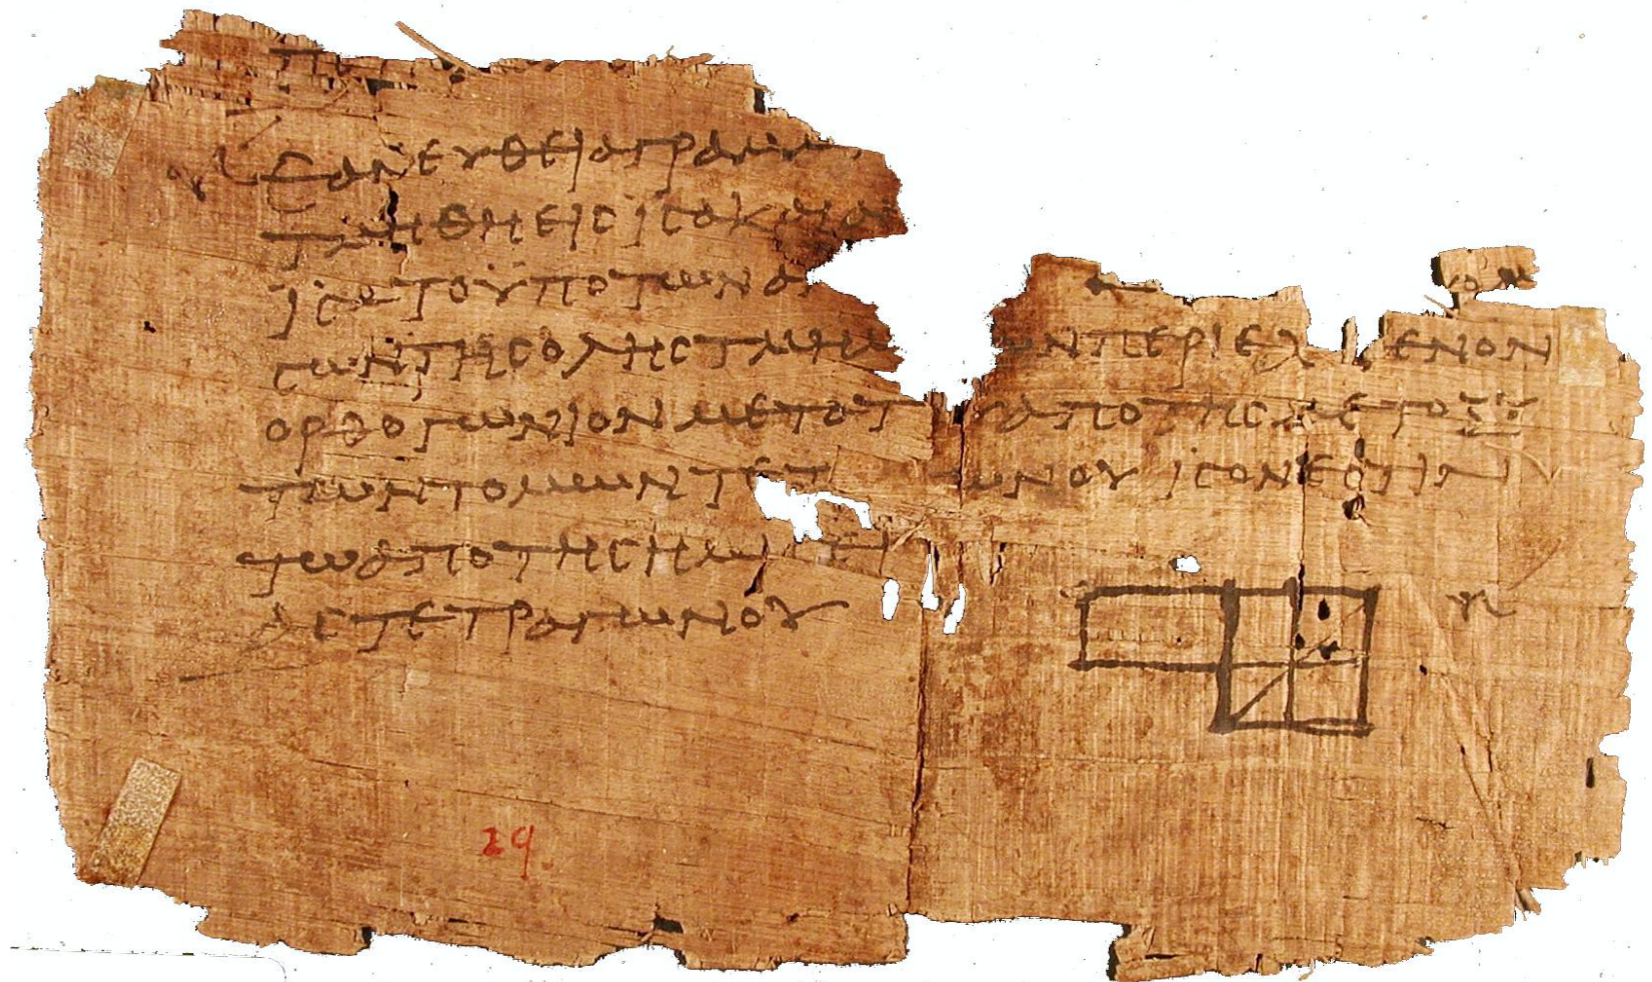 ΕΑΝΕΥΘΕΙΑΓΡΑΜΜ
ΤΜΗΘΗΕΙϹΙϹΑΚΑΙΑ
ΙϹΑΤΟΥΠΟΤΩΝΑΝ
ϹΩΝΤΗϹΟΛΗϹΤΜΗΜ ΩΝΠΕΡΙΕΧ ΜΕΝΟΝ
ΟΡΘΟΓΩΝΙΟΝΜΕΤΑΤ ΥΑΠΟΤΗϹΜΕΤΟΞΥ
ΤΩΝΤΟΜΩΝΤΕΤ ΩΝΟΥΙϹΟΝΕϹΤΙΝ
ΤΩΑΠΟΤΗϹΗΜΙϹΕΙ
ΑϹΤΕΤΡΑΓΩΝΟΥ
29.